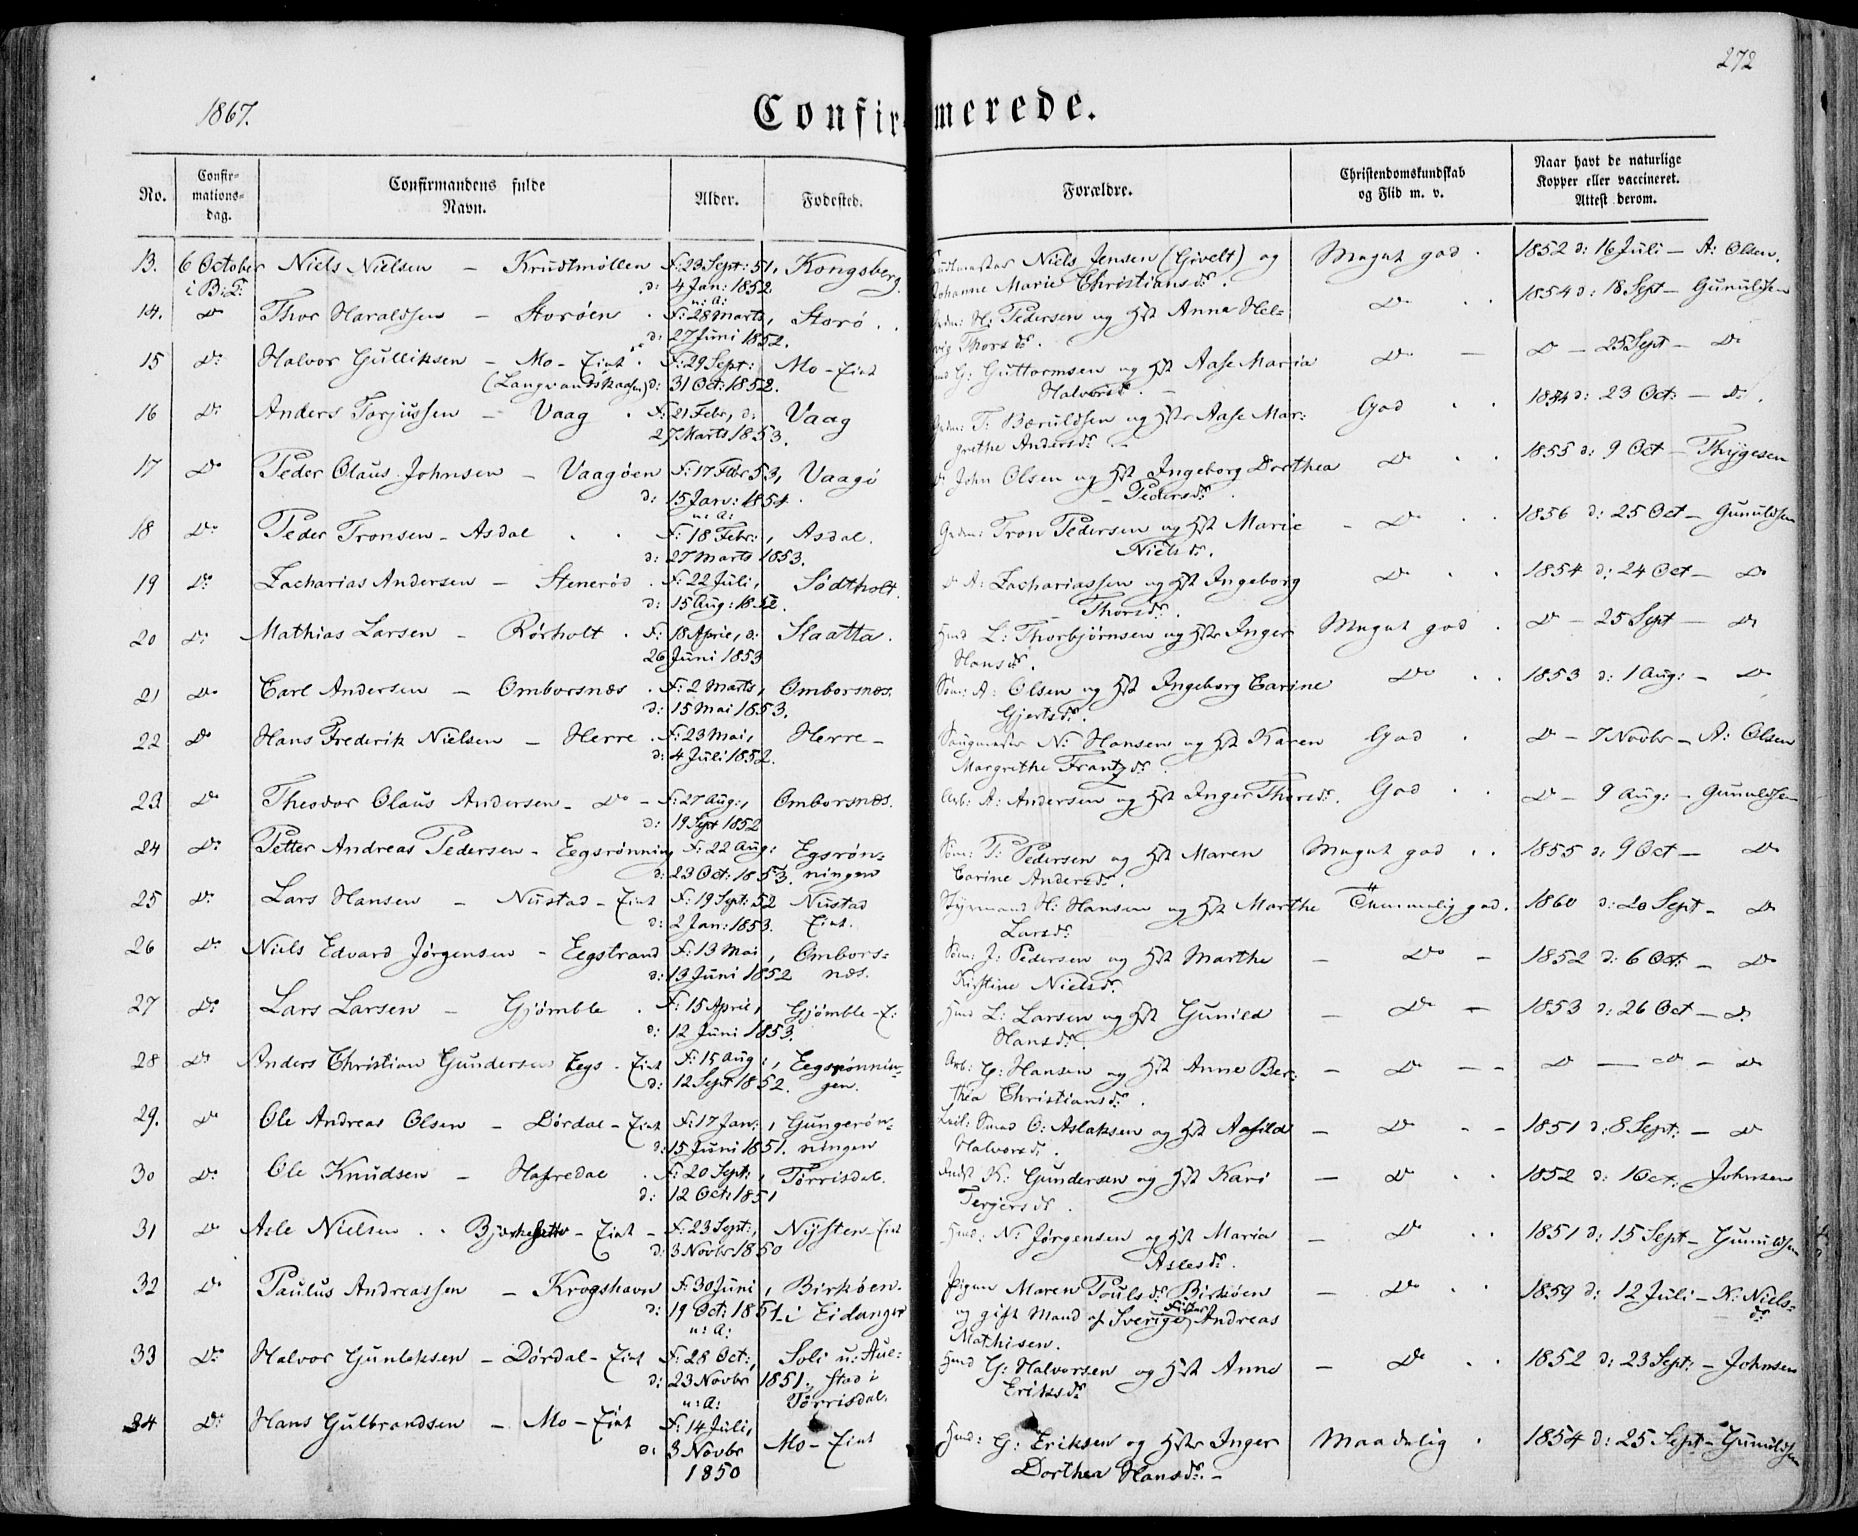 272
1867.
Confirmerede.
No.
Confir-
mations-
dag.
Confirmandens fulde
Navn.
Alder.
Fødested.
Forældre.
Christendomskundskab
og Flid m. v.
Naar havt de naturlige
Kopper eller vaccineret.
Attest derom.
13. 6 October Niels Nielsen – Krudtmøllen F: 23 Sept: 51, Kongsberg Niels Jensen (Givelt) og Meget god . 1852 d: 16 Juli – A: Olsen.
i B: d: 4 Jan: 1852. Johanne Marie Christiansdr.
u: a:
14. do Thor Haraldsen – Storøen . F: 28 Marts, Storø . . H: Pedersen og Hst Anna Hel- do . . 1854 d: 18 Sept – Gunuldsen
d: 27 Juni 1852. vig Thorsdr.
15 do Halvor Gulliksen – Mo – Eiet . F: 29 Sept: Mo – Eiet G: Guttormsen og Hst Aase Maria do – do – 25 Sept – do
(Langvandskaasen) d: 31 Oct: 1852. Halvorsdr. –
16 do Anders Torjussen – Vaag . F: 21 Febr, d: Vaag T: Bæruldsen og Hst Aase Mar- God . . 1854 d: 23 Oct: – do
27 Marts 1853. grethe Andersdr –
17 do Peder Olaus Johnsen – Vaagøen F: 17 Febr 53, Vaagø do John Olsen og Hst Ingeborg Dorthea do . . 1855 d: 9 Oct – Thygesen
d: 15 Jan: 1854. – Pedersdr.
u: a:
18 do Peder Tronsen – Asdal . . F: 18 Febr: , Asdal. Grdm: Tron Pedersen og Hst Marie – do . . 1856 d: 25 Oct – Gunuldsen
d: 27 Marts 1853. Nielsdr.
19 do Zacharias Andersen – Stenerød . F: 22 Juli, Södtholt. do A: Zachariassen og Hst Ingeborg do . . 1854 d: 24 Oct – do
d: 15 Aug: 1852. Thorsdr.
20 do Mathias Larsen – Rörholt . F: 18 April, d: Slaatta. Hmd L: Thorbjørnsen og Hst Inger Meget god . do – 25 Sept – do
26 Juni 1853 Hansdr.
21 do Carl Andersen – Omborsnæs . F: 2 Marts, Omborsnæs. Søm: A: Olsen og Hst Ingeborg Carine do . . 1853 d: 1 Aug: – do
d: 15 Mai 1853. Gjertsdr.
22 do Hans Frederik Nielsen – Herre . F: 23 Mai, Herre – Saugmester N: Hansen og Hst Karen God . do – 7 Novbr – A: Olsen
d: 4 Juli 1852. Margrethe Frantzdr.
23 do Theodor Olaus Andersen – do – F: 27 Aug:, Omborsnæs. Arb: A: Andersen og Hst Inger Thorsdr. God . . do – 9 Aug: – Gunuldsen
d: 19 Sept 1852
24 do Petter Andreas Pedersen – Eegsrønning F: 22 Aug: Egsrøn- Søm: P: Pedersen og Hst Maren Meget god . . 1855 d: 9 Oct – do
d: 23 Oct: 1853. ningen Carine Andersdr.
25 do Lars Hansen – Nustad – Eiet F: 19 Sept: 52 Nustad Styrmand H: Hansen og Hst Marthe Temmelig god. 1860 d: 20 Sept – do
d: 2 Jan: 1853. Eiet. Larsdr
26 do Niels Edvard Jørgensen – Eegstrand F: 13 Mai, Ombors- Søm: J: Pedersen og Hst Marthe – do – 1852 d: 6 Oct: – do
d: 13 Juni 1852 næs. Kirstine Nielsdr.
27 do Lars Larsen – Gjømble . F: 15 April, Gjømble – E: Hmd L: Larsen og Hst Gunild – do – 1853 d: 26 Oct – do
d: 12 Juni 1853. Hansdr.
28 do Anders Christian Gundersen Eegs . Eiet F: 15 Aug:, Eegsrønnin- Arb: G: Hansen og Hst Anne Ber- – do – – do – do – do
d: 12 Sept 1852. gen. thea Christiansdr.
29. do Ole Andreas Olsen – Dørdal – Eiet F: 17 Jan:, Gungerøn- O: Aslaksen og Hst Aasild – do – – 1851 d: 8 Sept: – do
d: 15 Juni 1851. ningen Halvorsdr.
30 do Ole Knudsen – Hafredal . F: 20 Sept:, Tørrisdal. Indst K: Gundersen og Hst Kari – do . . 1852 d: 1 Oct: Johnsen
d: 12 Oct: 1851 Terjersdr.
31 do Asle Nielsen . . – Eiet – F: 23 Sept:, Nysten – Eiet Hmd: N: Jørgensen og Hst Maria – do . . 1851 d: 15 Sept – Gunuldsen
d: 3 Novbr 1850 Aslesdr.
32 do Paulus Andreassen – Krogshavn F: 30 Juni, Birkøen. Pigen Maren Poulsdr: Birkøen – do . . 1859 d: 12 Juli – N: Niels-
d: 19 Oct: 1851 i Eidanger og gift Mand af Sverige, Andreas dr
u: a: Mathisen.
33 do Halvor Gunleksen – Dørdal – Eiet F: 28 Oct:, Soli u: Aul- Hmd G: Halvorsen og Hst Anne – do . . 1852 d: 23 Sept: – Johnsen
d: 23 Novbr 1851. stad i Eriksdr
u: a: Tørrisdal.
34 do Hans Gulbrandsen – Mo – Eiet F: 14 Juli, Mo – Eiet Hmd: G: Eriksen og Hst Inger Maadelig . 1854 d: 25 Sept – Gunuldsen
d: 3 Novbr Dorthea Hansdr. –
1850